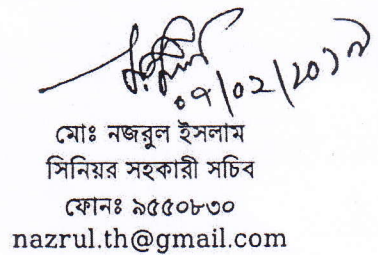 ০৭/০২/২০১৭
মোঃ নজরুল ইসলাম
সিনিয়র সহকারী সচিব
ফোনঃ ৯৫৫০৮৩০
nazrul.th@gmail.com